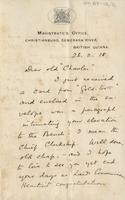 MAGISTRATE'S OFFICE,
CHRISTIANBURG, DEMERARA RIVER,
BRITISH GUIANA.
26. 2. 18.
Dear old Charlie
I just received
a card from
and enclosed in the en-
velope was a paragraph
intimating your elevation
to the Bench. I mean the
Chief Clerkship. Well done
old chap, and I hope
to live to see you get
years as Lord
Heartiest congratulations